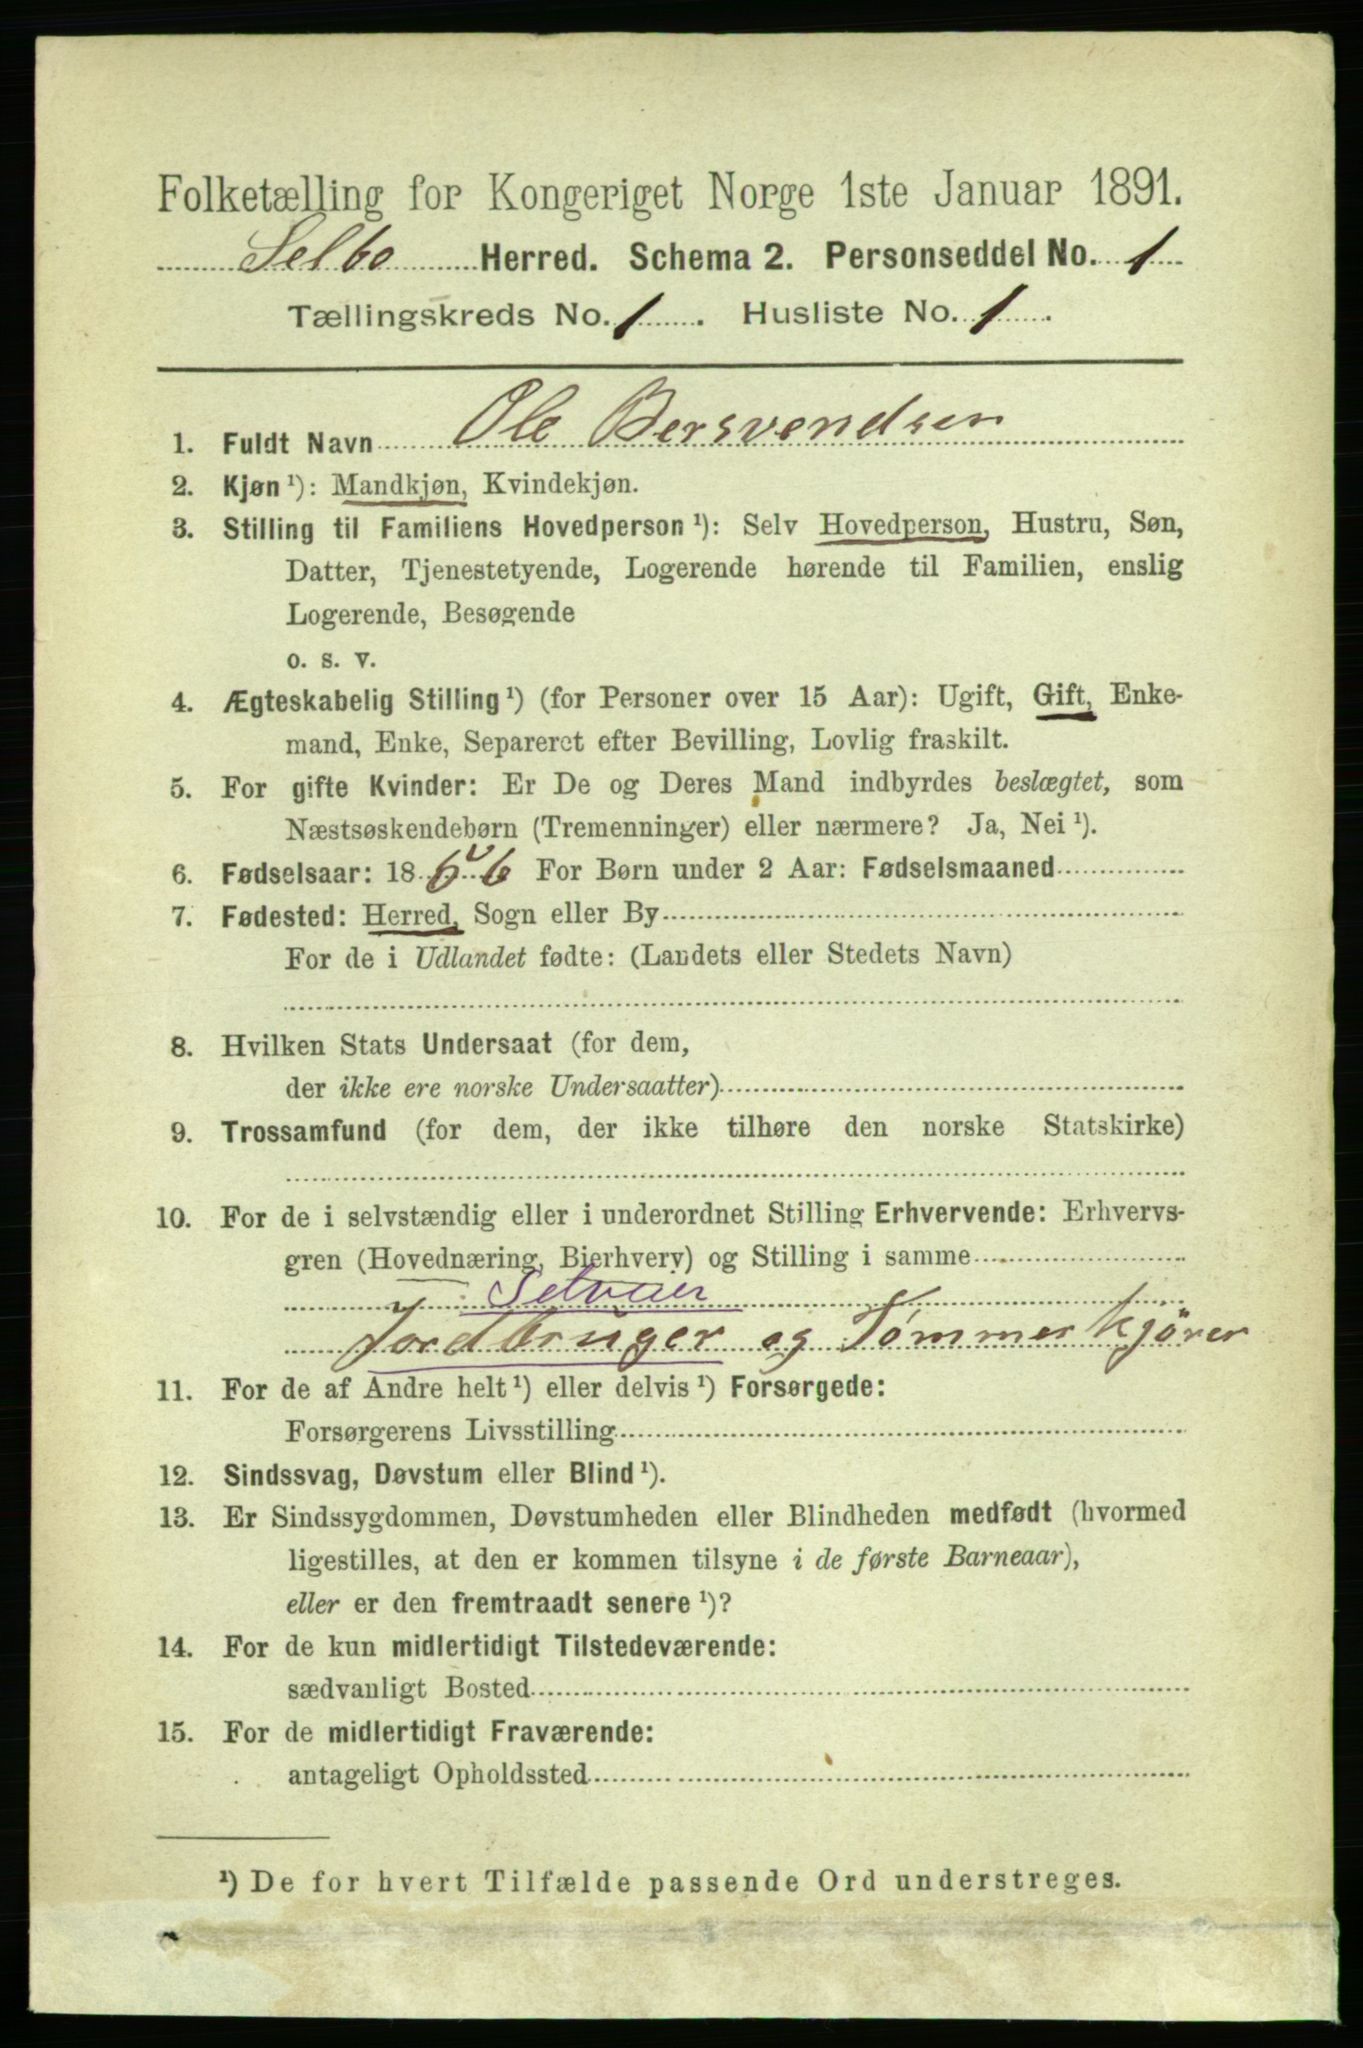 Folketælling for Kongeriget Norge 1ste Januar 1891.
Selbo Herred. Schema 2. Personseddel No. 1
Tællingskreds No. 1. Husliste No. 1.
1. Fuldt Navn Ole Bersvendsen
2. Kjøn ¹): Mandkjøn, Kvindekjøn.
3. Stilling til Familiens Hovedperson ¹): Selv Hovedperson, Hustru, Søn,
Datter, Tjenestetyende, Logerende hørende til Familien, enslig
Logerende, Besøgende
o. s. v.
4. Ægteskabelig Stilling ¹) (for Personer over 15 Aar): Ugift, Gift, Enke-
mand, Enke, Separeret efter Bevilling, Lovlig fraskilt.
5. For gifte Kvinder: Er De og Deres Mand indbyrdes beslægtet, som
Næstsøskendebørn (Tremenninger) eller nærmere? Ja, Nei ¹).
6. Fødselsaar: 18 For Børn under 2 Aar: Fødselsmaaned
7. Fødested: Herred, Sogn eller By
For de i Udlandet fødte: (Landets eller Stedets Navn)
8. Hvilken Stats Undersaat (for dem,
der ikke ere norske Undersaatter)
9. Trossamfund (for dem, der ikke tilhøre den norske Statskirke)
10. For de i selvstændig eller i underordnet Stilling Erhvervende: Erhvervs-
gren (Hovednæring, Bierhverv) og Stilling i samme
Selveier
Jordbruger og Tømmerkjörer
11. For de af Andre helt ¹) eller delvis ¹) Forsørgede:
Forsørgerens Livsstilling
12. Sindssvag, Døvstum eller Blind ¹).
13. Er Sindssygdommen, Døvstumheden eller Blindheden medfødt (hvormed
ligestilles, at den er kommen tilsyne i de første Barneaar),
eller er den fremtraadt senere ¹)?
14. For de kun midlertidigt Tilstedeværende:
sædvanligt Bosted
15. For de midlertidigt Fraværende:
antageligt Opholdssted
¹) De for hvert Tilfælde passende Ord understreges.